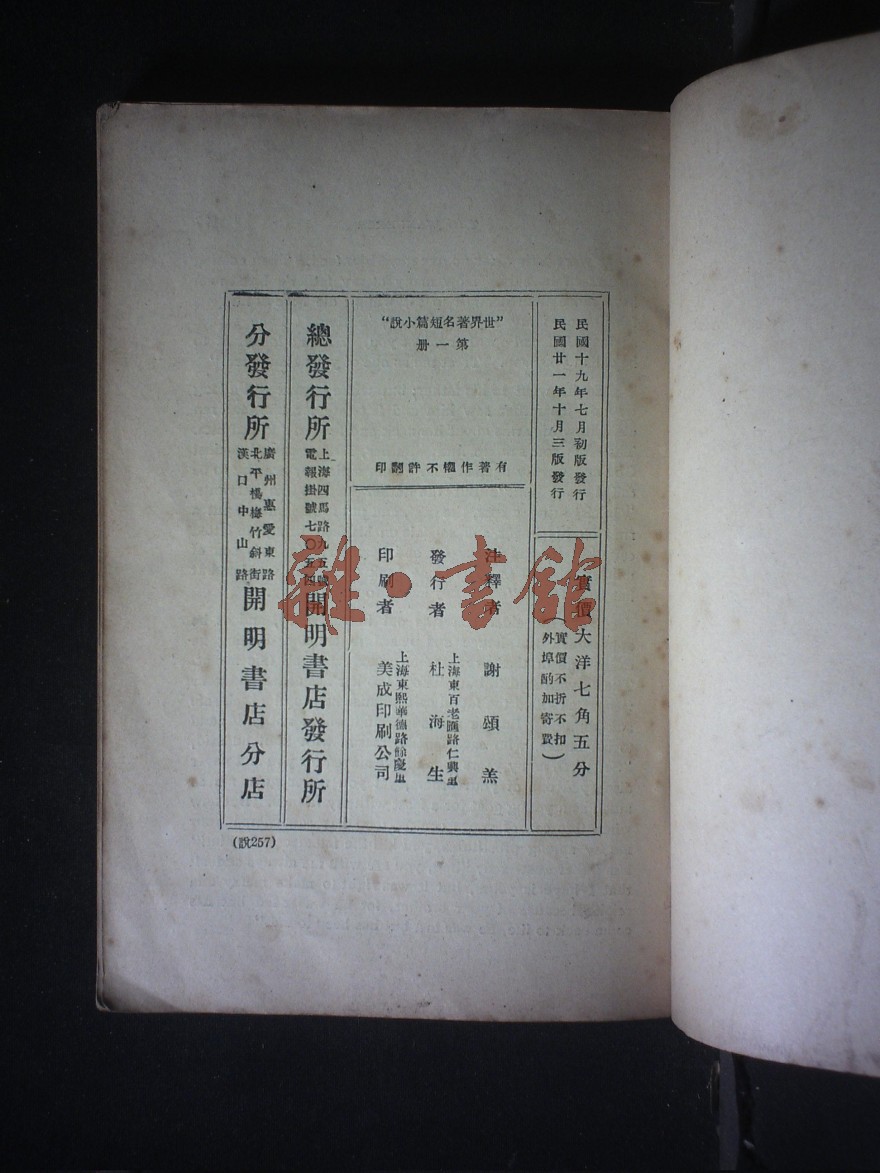 民國十九年七月初版發行
民國廿一年十月三版發行
實價大洋七角五分
(實價不折不扣
外埠酌加寄費)
“世界著名短篇小說”
第一册
有著作權不許翻印
注釋者 謝頌羔
發行者 上海東百老匯路仁興里
杜海生
印刷者 上海東熙華德路餘慶里
美成印刷公司
總發行所 上海四馬路九五號
電報掛號七〇五四
開明書店發行所
分發行所 廣州惠愛東路
北平楊梅竹斜街
漢口中山路
開明書店分店
(說257)
雜·書館